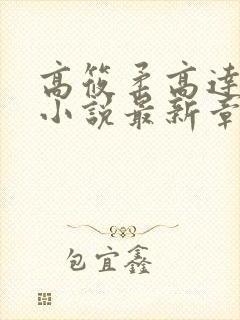 高筱柔高達
小説最新章
包宜鑫